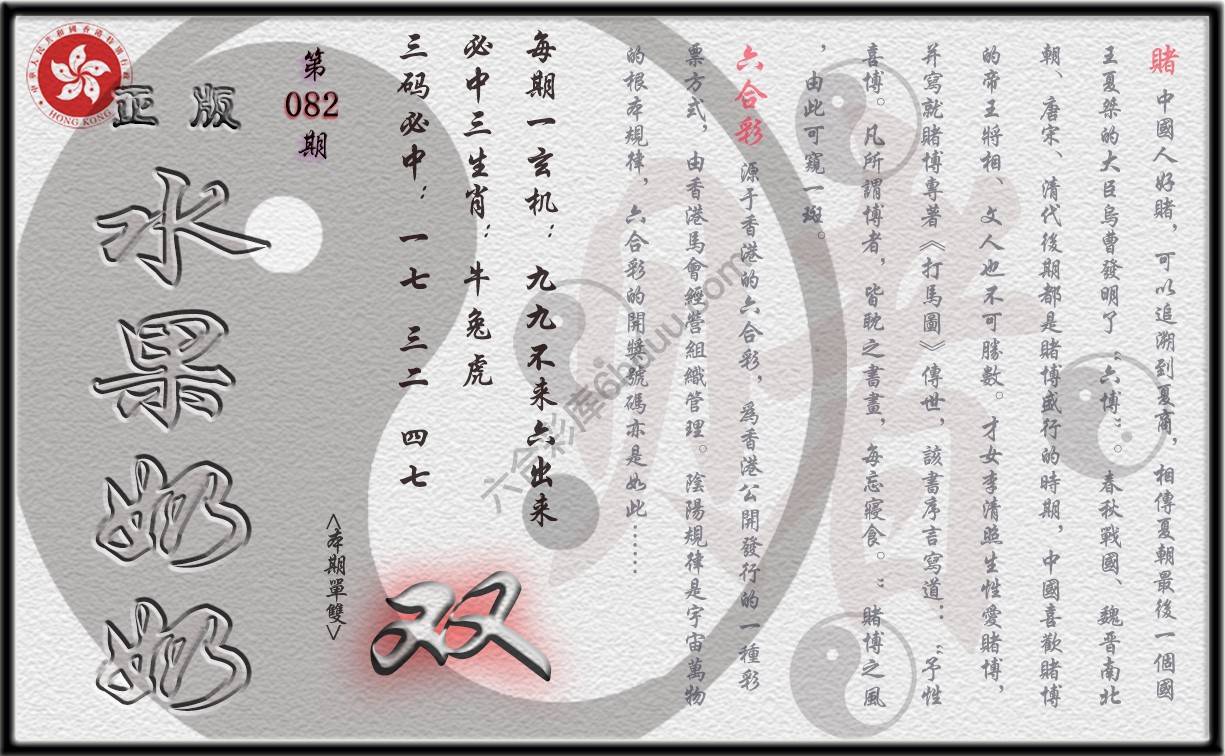 賭 中國人好賭，可以追溯到夏商，相傳夏朝最後一個國
王夏桀的大臣烏曹發明了“六博”。春秋戰國、魏晉南北
朝、唐宋、清代後期都是賭博盛行的時期，中國喜歡賭博
的帝王將相、文人也不可勝數。才女李清照生性愛賭博，
并寫就賭博專著《打馬圖》傳世，該書序言寫道：“予性
喜博。凡所謂博者，皆耽之書畫，每忘寢食。”賭博之風
，由此可窺一斑。
六合彩 源于香港的六合彩，爲香港公開發行的一種彩
票方式，由香港馬會經營組織管理。陰陽規律是宇宙萬物
的根本規律，六合彩的開獎號碼亦是如此……
每期一玄机：九九不来六出来
必中三生肖：牛兔虎
三码必中：一七 三二 四七
第
082
期
<本期單雙>
双
正版
水果奶奶
中華人民共和國香港特別行政區
HONG KONG
六合彩库6hduu.com